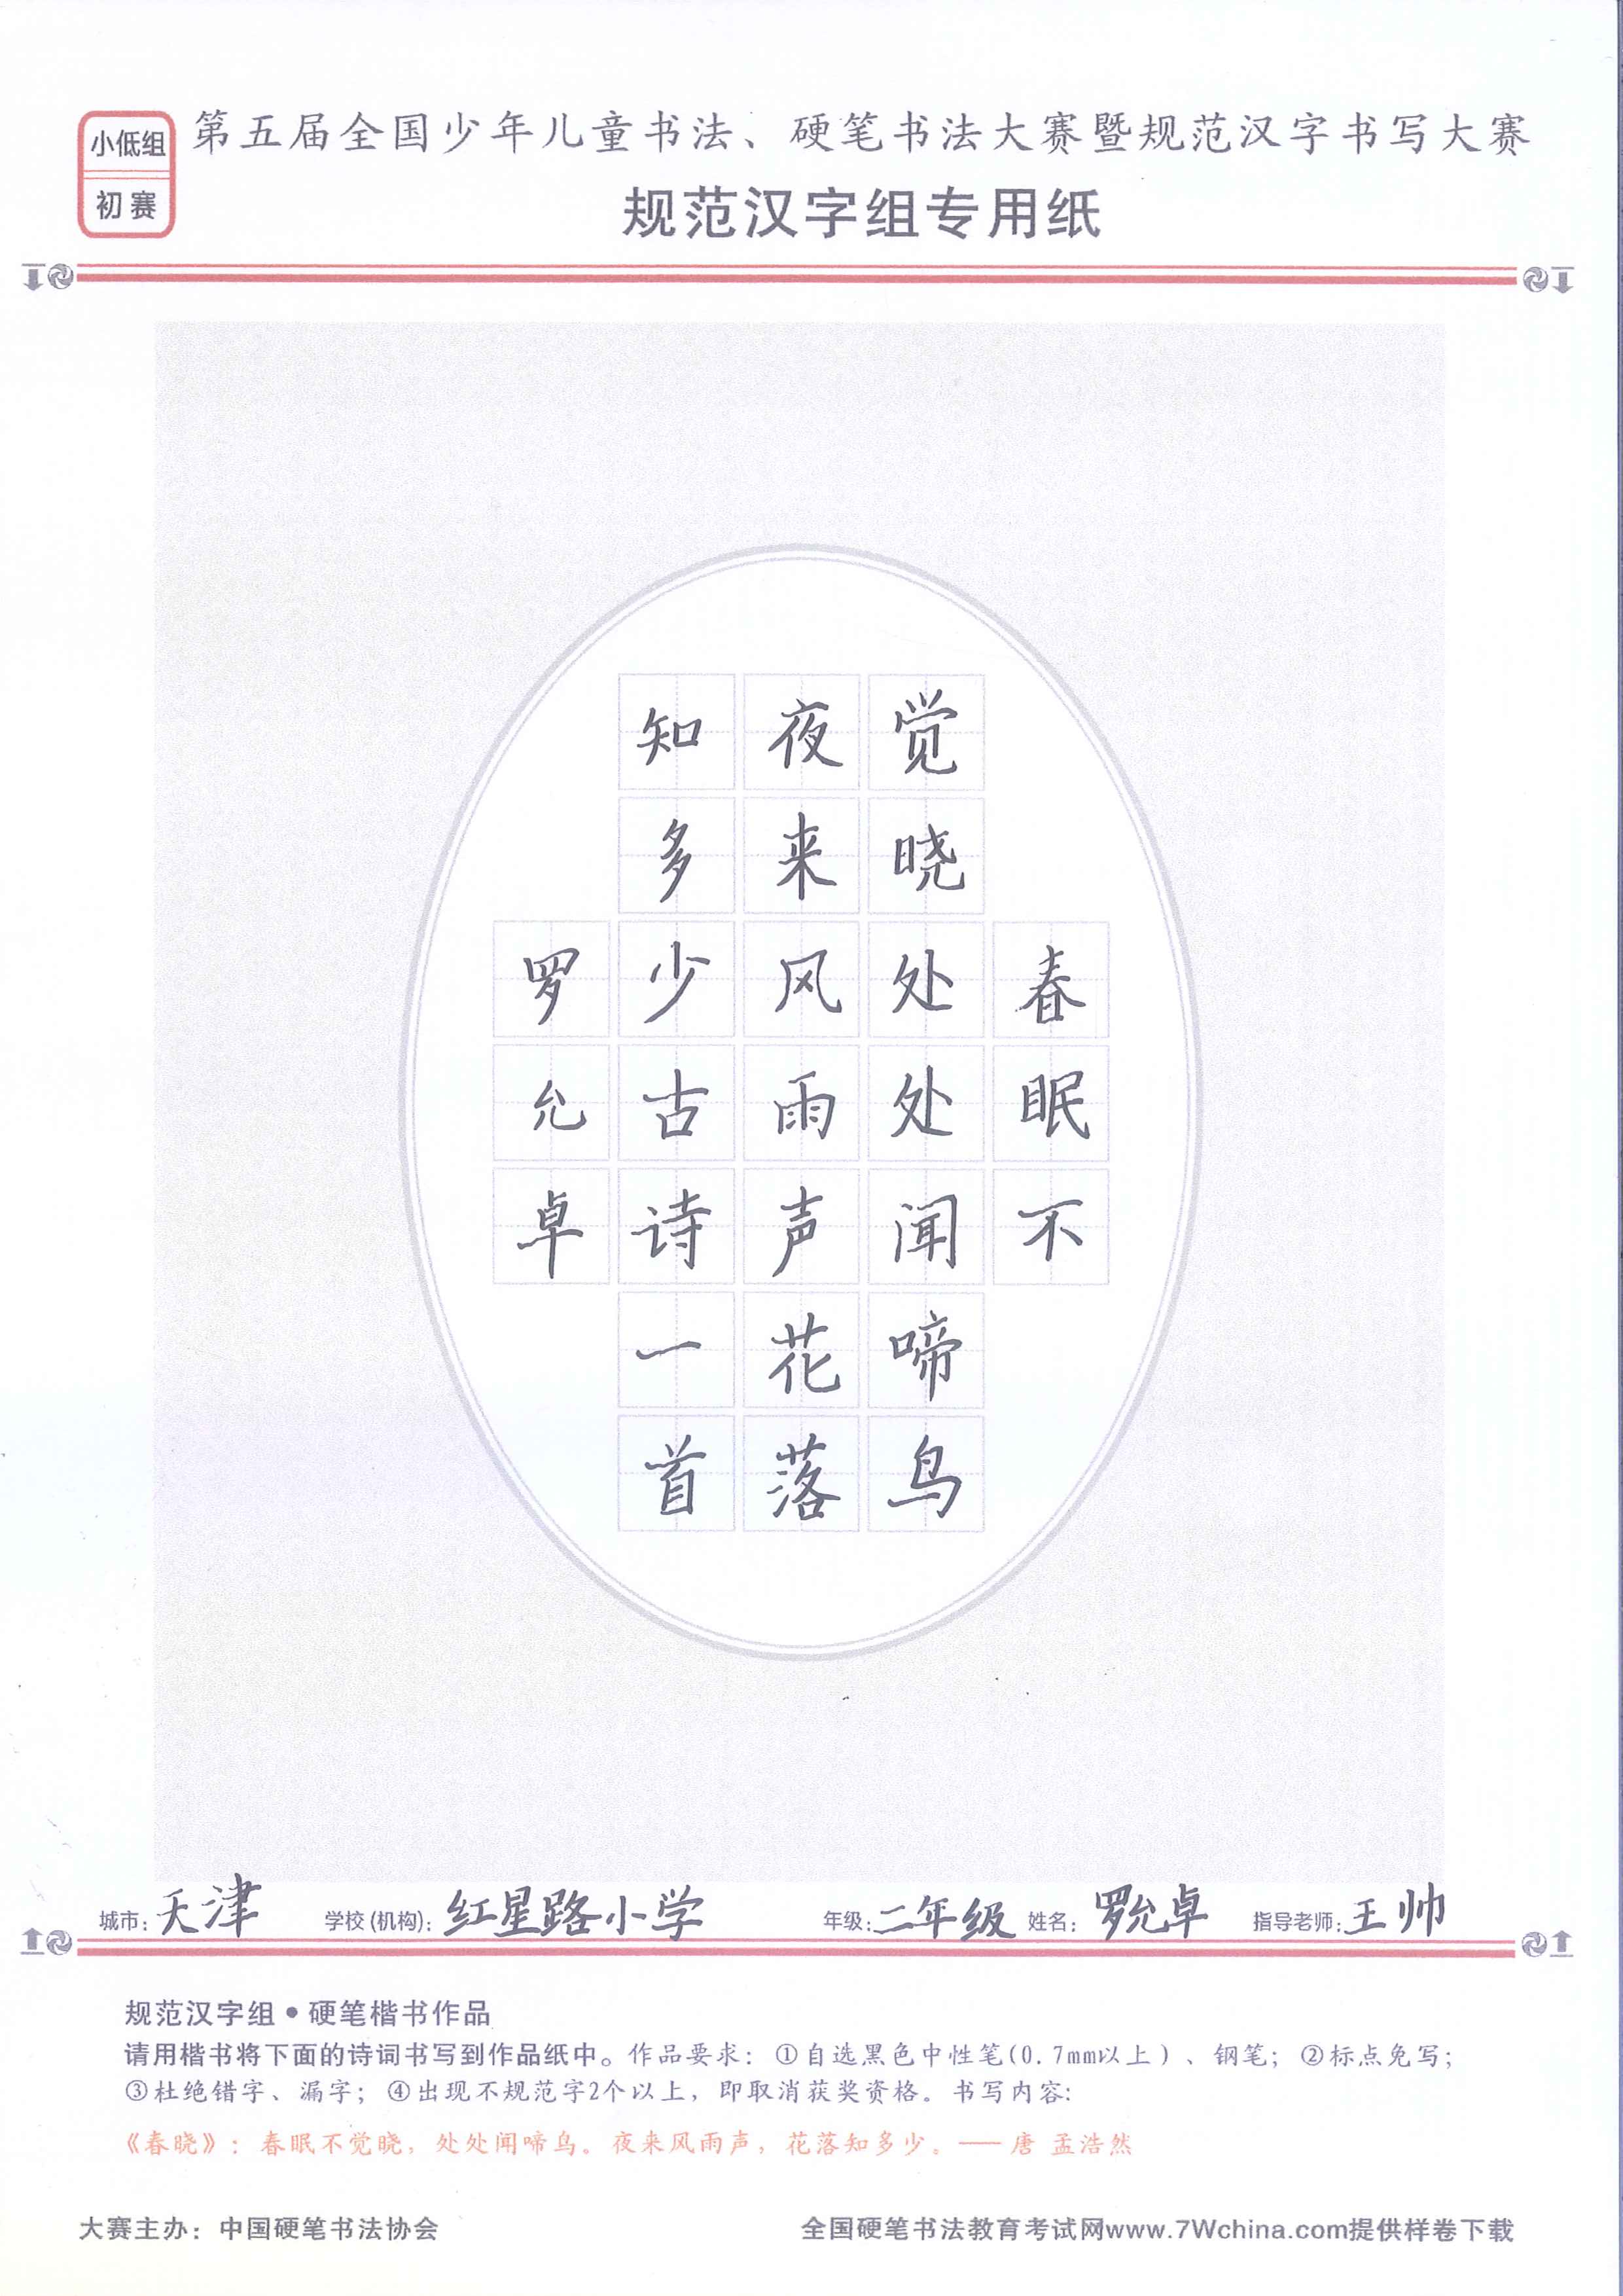 小低组
初赛
第五届全国少年儿童书法、硬笔书法大赛暨规范汉字书写大赛
规范汉字组专用纸
春眠不
觉晓处处闻啼鸟
夜来风雨声花落
知多少古诗一首
罗允卓
城市：天津 学校（机构）：红星路小学 年级：二年级 姓名：罗允卓 指导老师：王帅
规范汉字组•硬笔楷书作品
请用楷书将下面的诗词书写到作品纸中。作品要求：①自选黑色中性笔(0.7mm以上)、钢笔；②标点免写；
③杜绝错字、漏字；④出现不规范字2个以上，即取消获奖资格。书写内容：
《春晓》：春眠不觉晓，处处闻啼鸟。夜来风雨声，花落知多少。——唐 孟浩然
大赛主办：中国硬笔书法协会
全国硬笔书法教育考试网www.7Wchina.com提供样卷下载